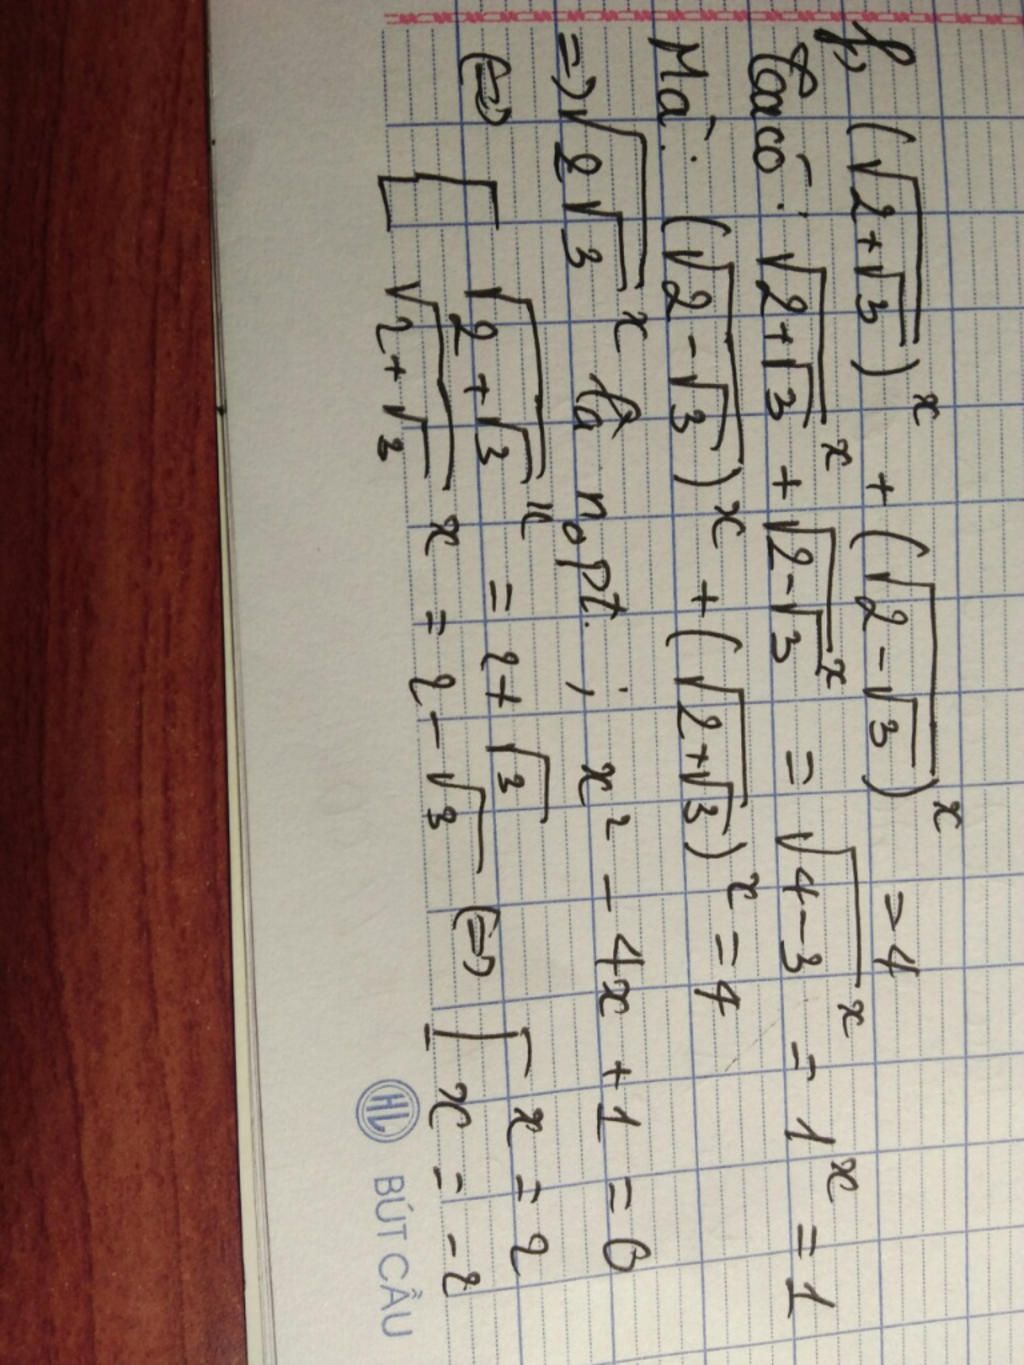 f, (√(2+√3))ˣ + (√(2-√3))ˣ = 4
Ta có: √(2+√3)ˣ + √(2-√3)ˣ = √(4-3)ˣ = 1ˣ = 1
Mà: (√(2-√3))ˣ + (√(2+√3))ˣ = 4
=> √(2√3)ˣ là no pt: ; x² - 4x + 1 = 0
<=> [ √(2+√3)ˣ = 2+√3 <=> [ x = 2
√(2+√3)ˣ = 2-√3 x = -2
HL BÚT CẦU